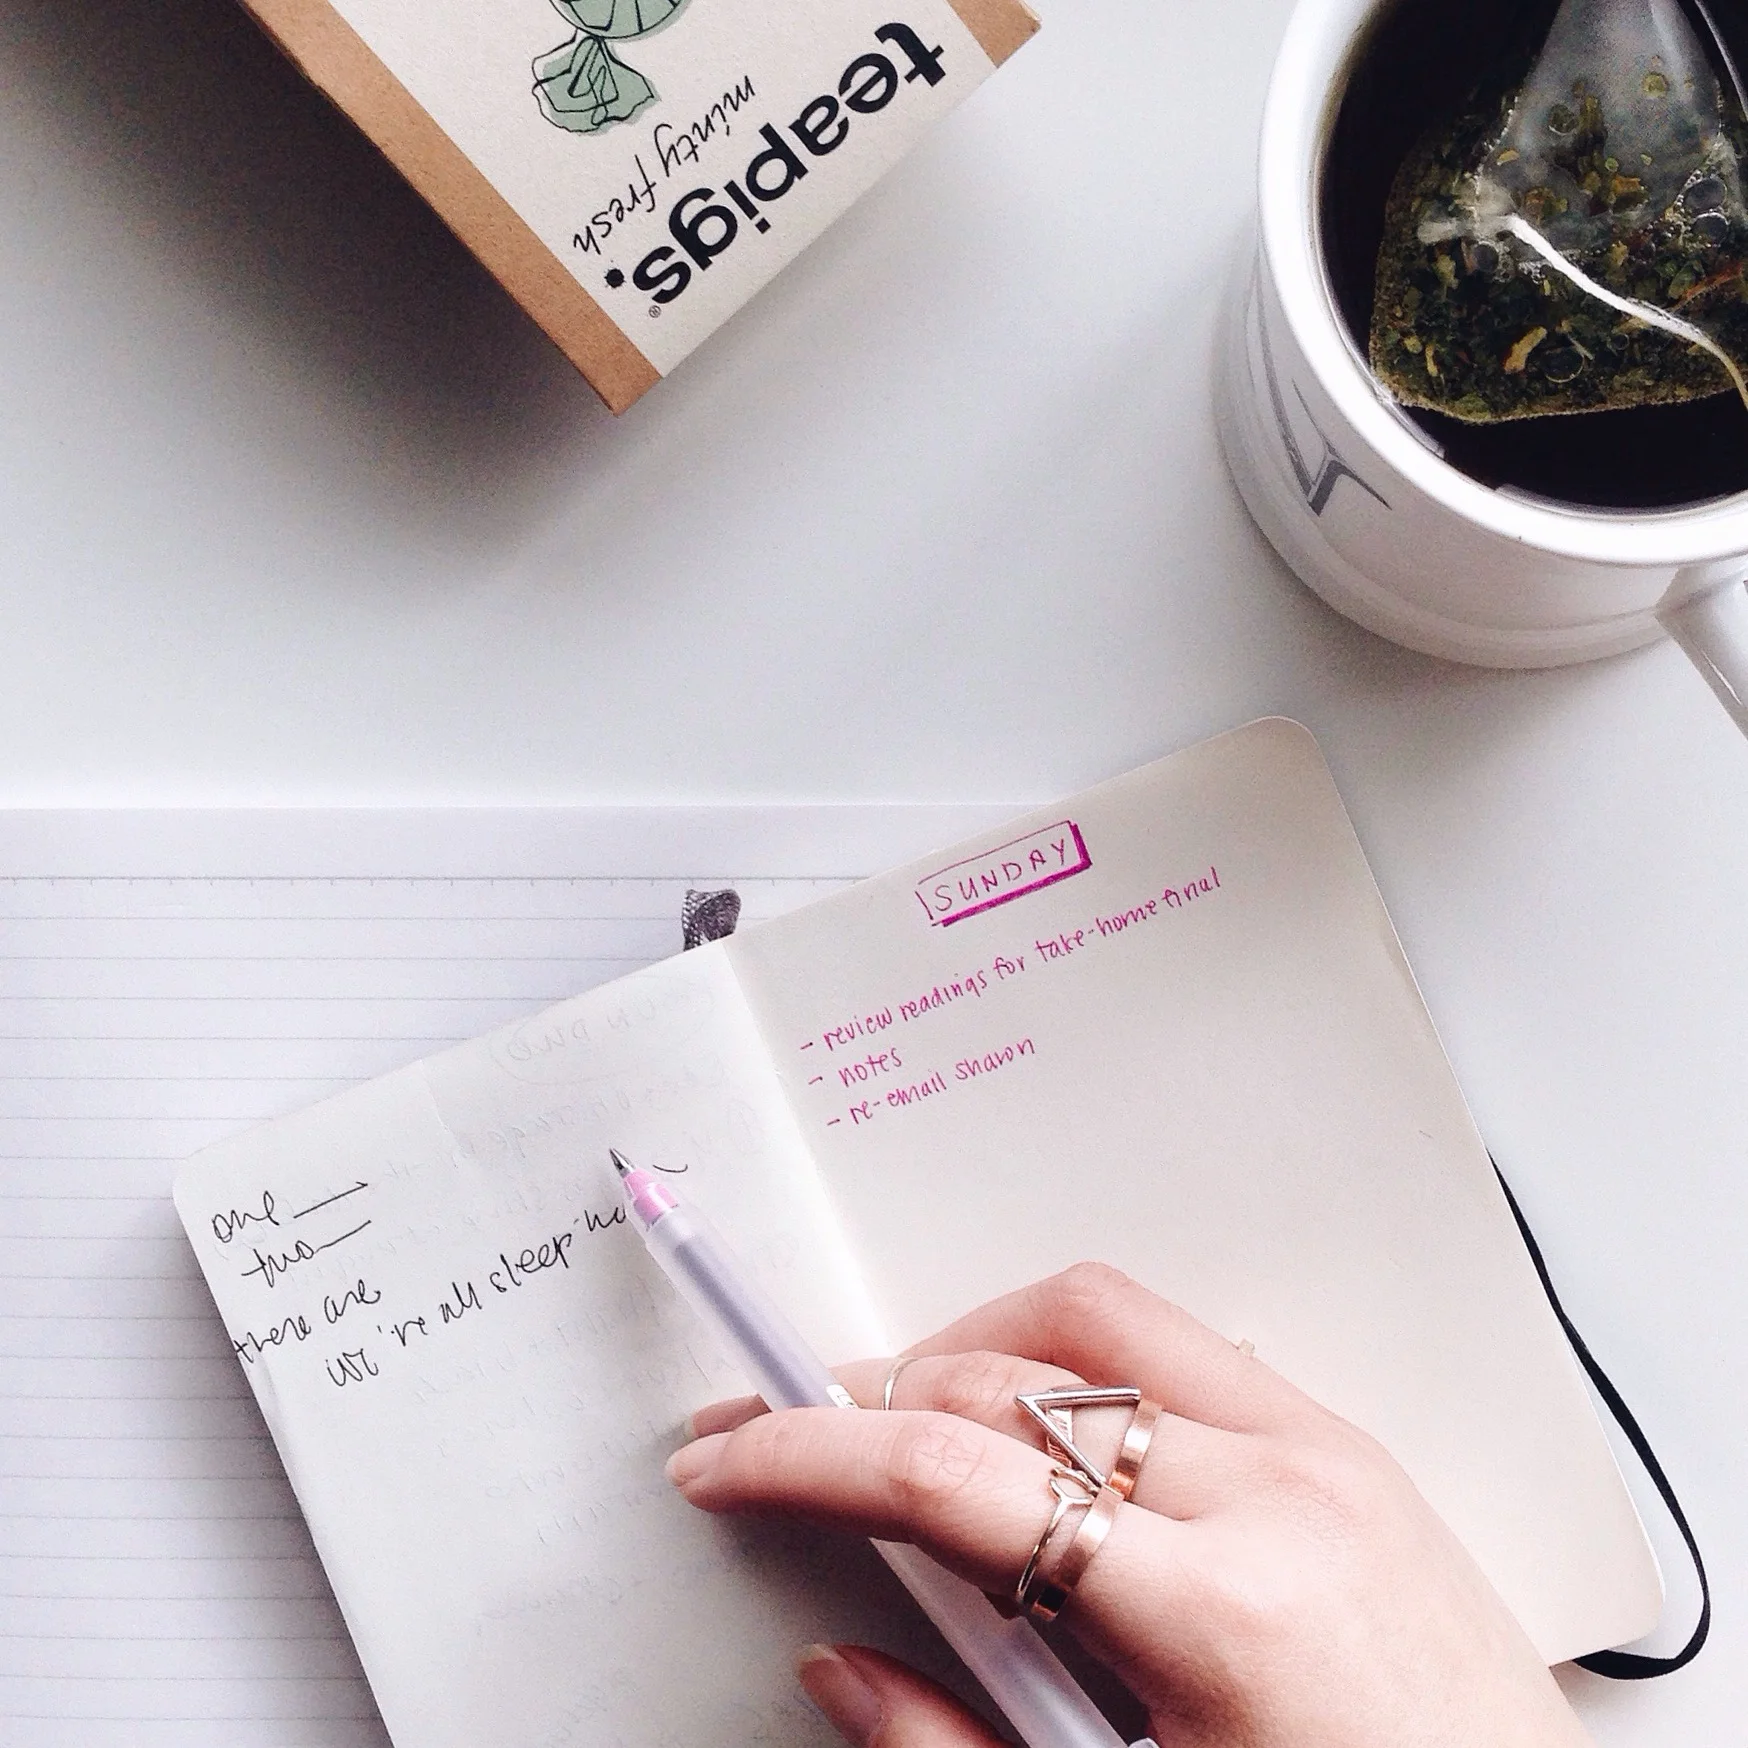 teapigs.®
minty fresh
one
two
there are
we're all sleep
SUNDAY
- review readings for take-home final
- notes
- re-email sharon